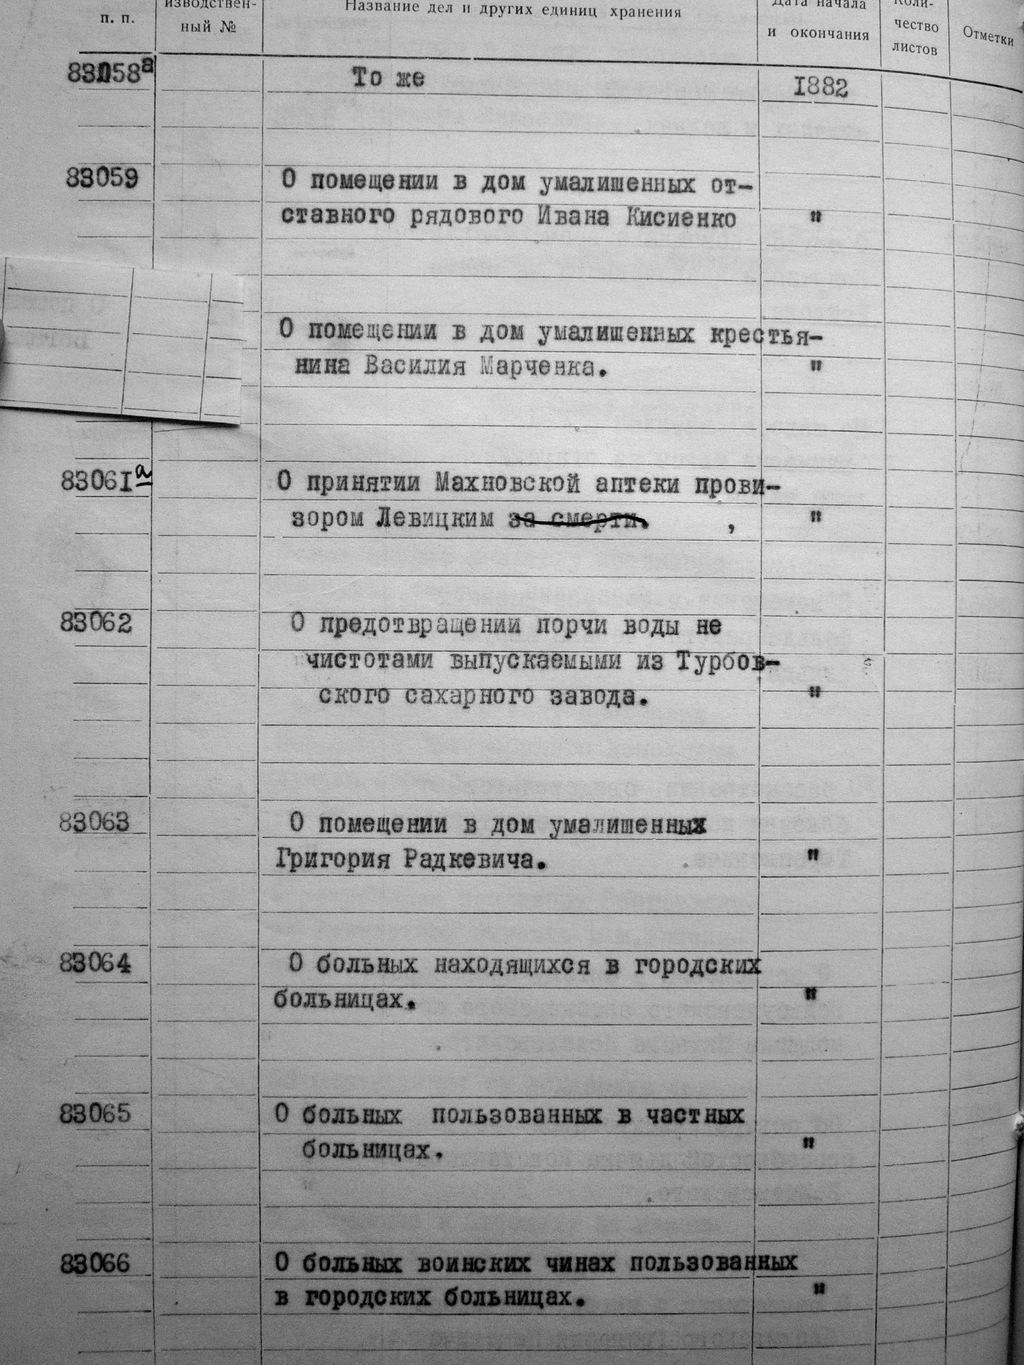 изводствен-
Название дел и других единиц хранения
Дата начала
Коли-
п. п.
ный №
и окончания
чество
листов
Отметки
83058а
То же
1882
83059
О помещении в дом умалишенных от-
ставного рядового Ивана Кисиенко
"
О помещении в дом умалишенных крестья-
нина Василия Марченка.
"
83061а
О принятии Махновской аптеки прови-
зором Левицким за смерти. ,
"
83062
О предотвращении порчи воды не
чистотами выпускаемыми из Турбов-
ского сахарного завода.
"
83063
О помещении в дом умалишенных
Григория Радкевича.
"
83064
О больных находящихся в городских
больницах.
"
83065
О больных пользованных в частных
больницах.
"
83066
О больных воинских чинах пользованных
в городских больницах.
"